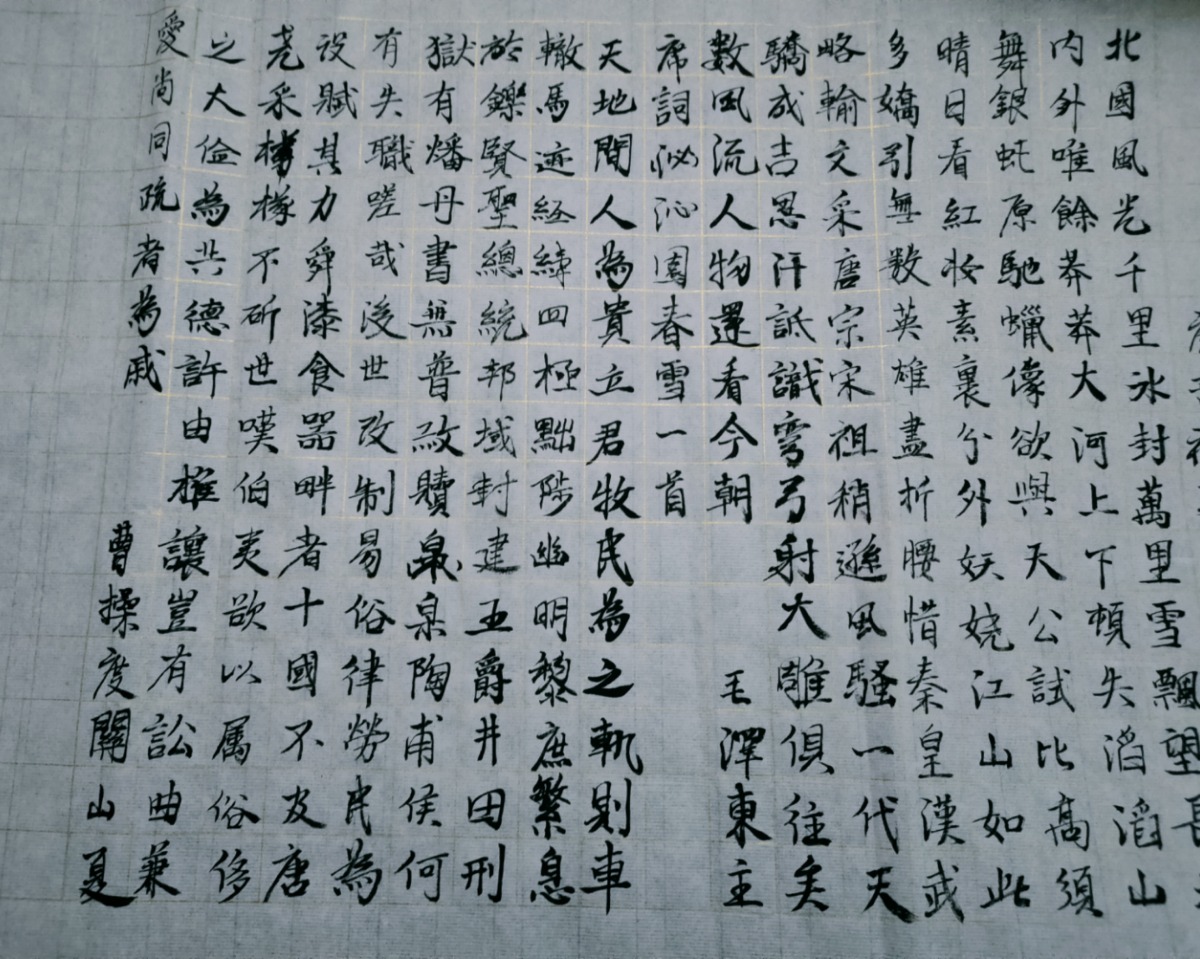 北國風光千里氷封萬里雪飄望長
内外唯餘莽莽大河上下頓失滔滔山
舞銀蛇原馳蠟像欲與天公試比高須
晴日看紅妝素裹分外妖嬈江山如此
多嬌引無數英雄盡折腰惜秦皇漢武
略輸文采唐宗宋祖稍遜風騷一代天
驕成吉思汗詆識彎弓射大雕俱往矣
數風流人物還看今朝 毛澤東主
席詞泌沁園春雪一首
天地間人為貴立君牧民為之軌則車
轍馬迹経緯四極黜陟幽明黎庶繁息
於鑠賢聖總統邦域封建五爵井田刑
獄有燔丹書無普赦贖皋陶甫侯何
有失職嗟哉後世改制易俗律勞民為
設賦其力舜漆食器畔者十國不及唐
堯采椽不斫世嘆伯夷欲以属俗侈
之大儉為共德許由推讓豈有訟曲兼
愛尚同疏者為戚 曹操度關山夏